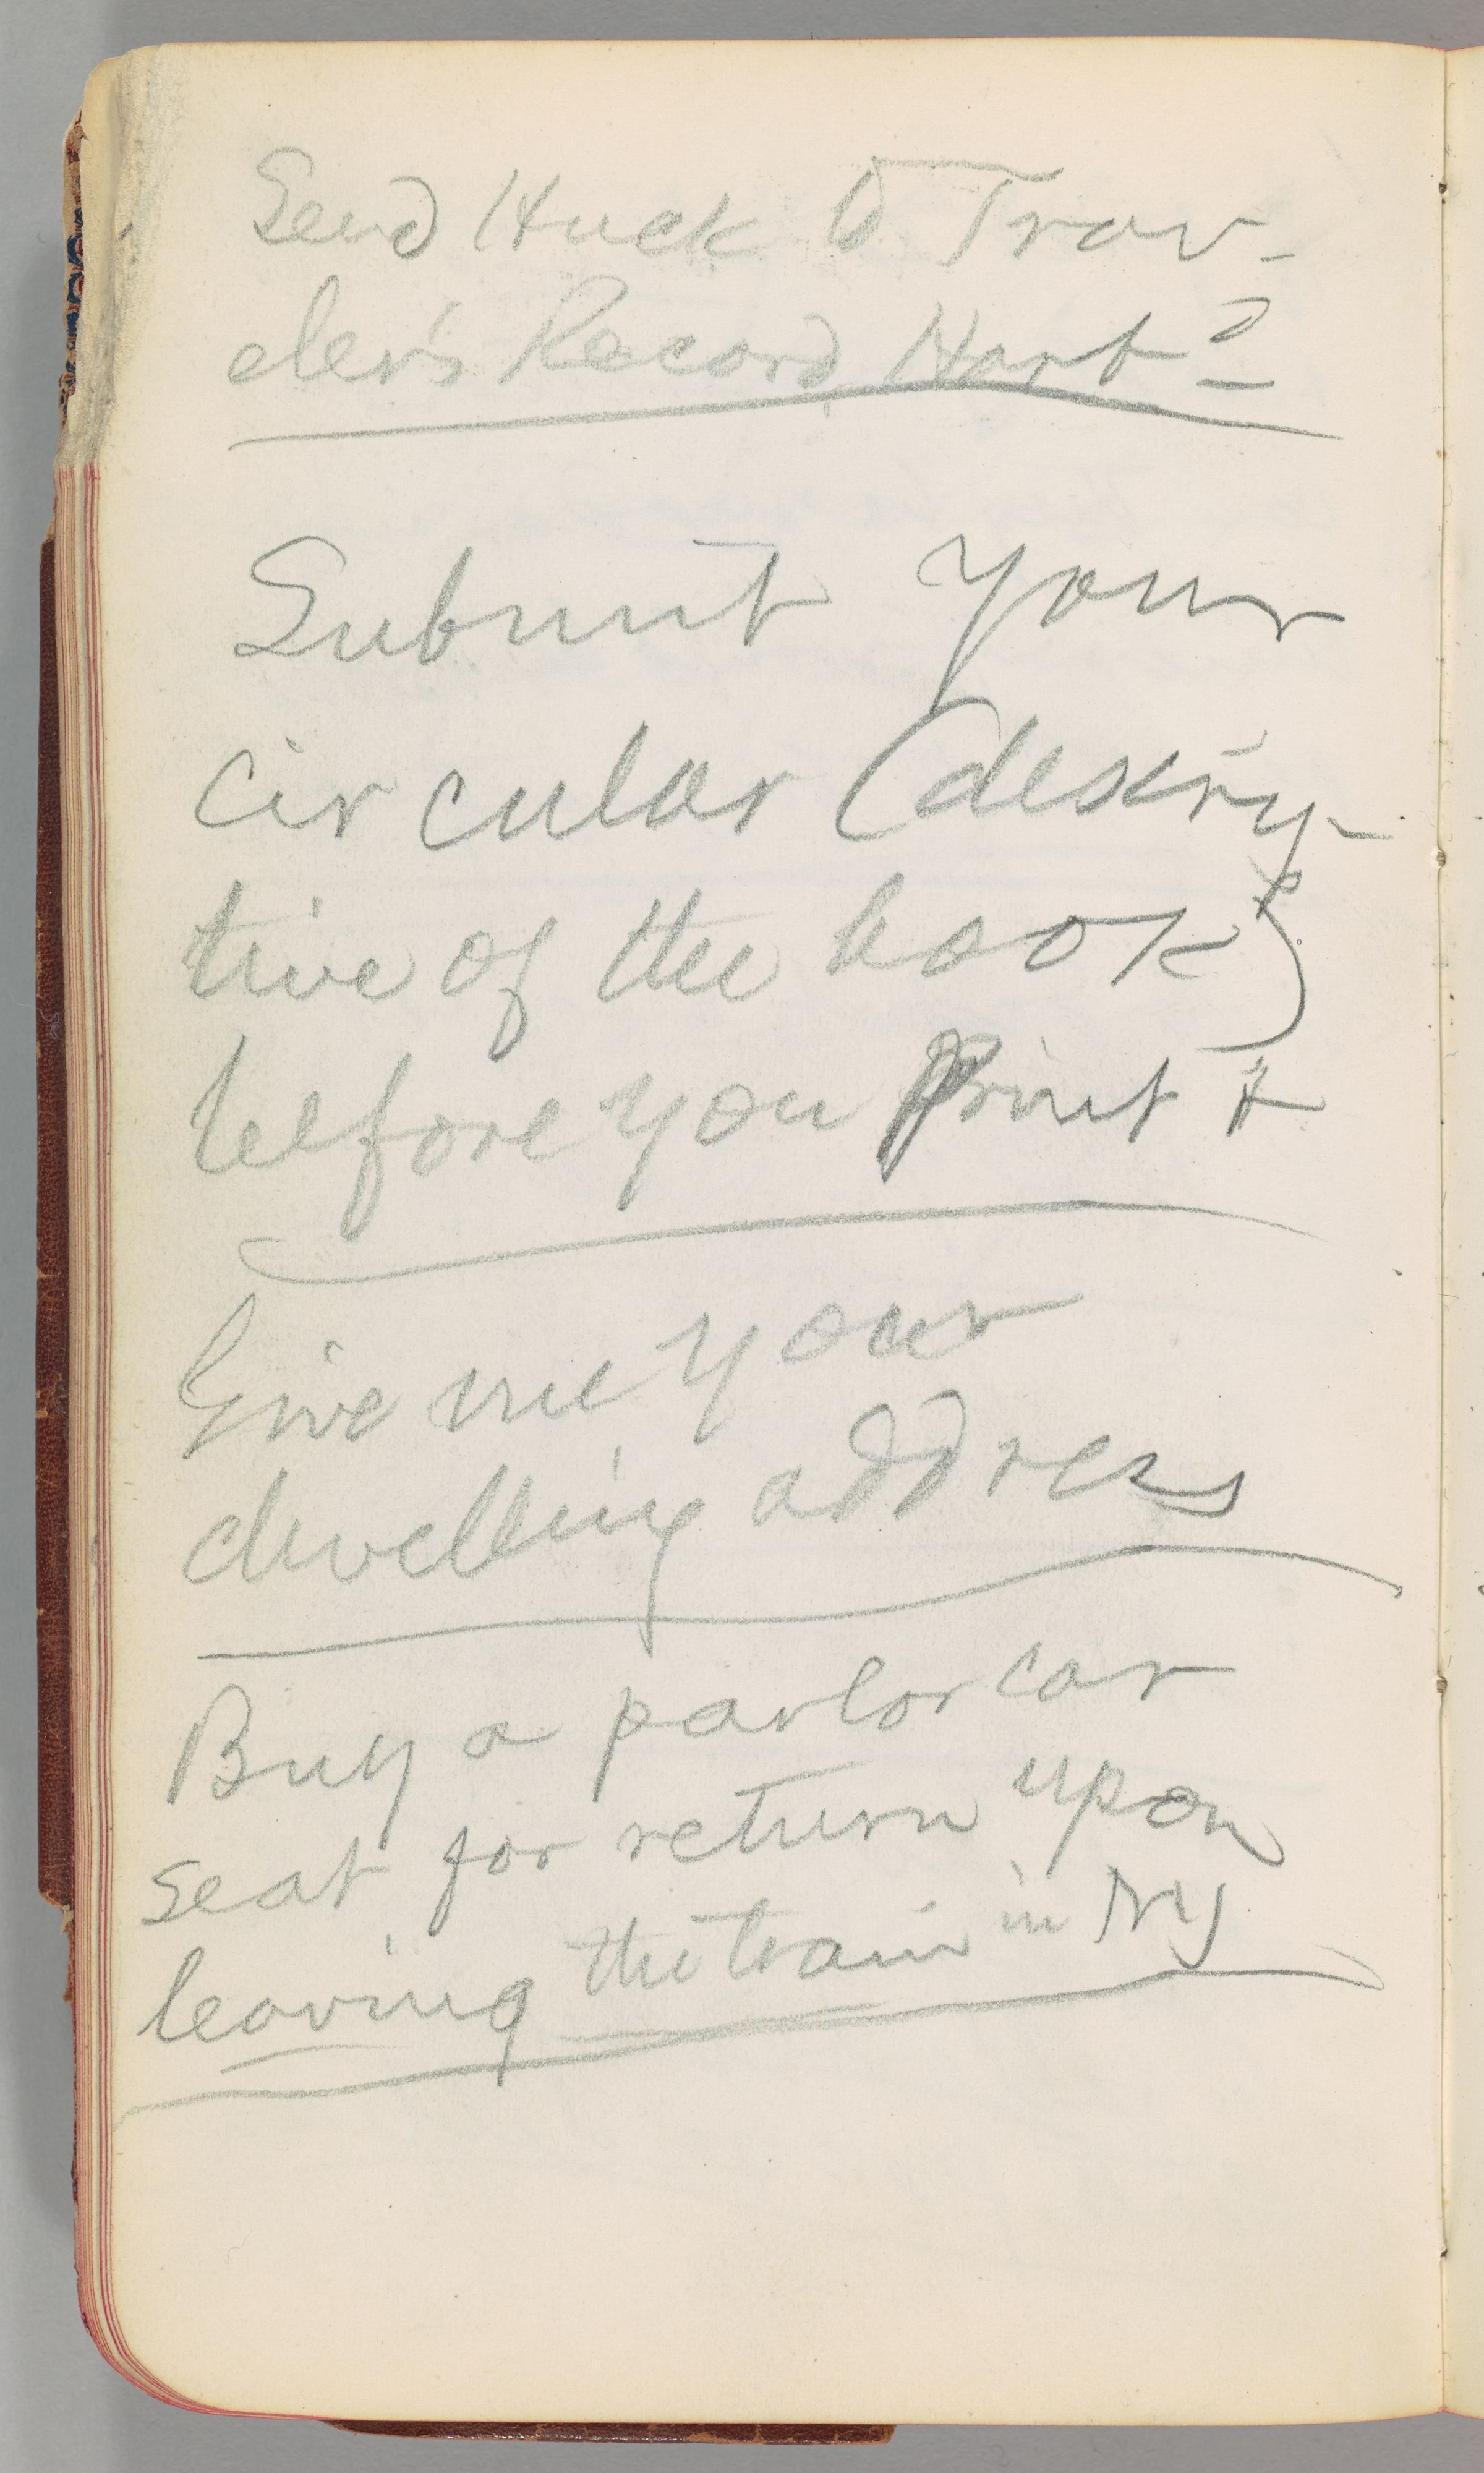 Send Huck to Trav-
eler's Record, Hartd
Submit your
circular (descrip-
tive of the book)
before you print it
Give me your
dwelling address
Buy a parlor car
seat for return upon
leaving the train in NY